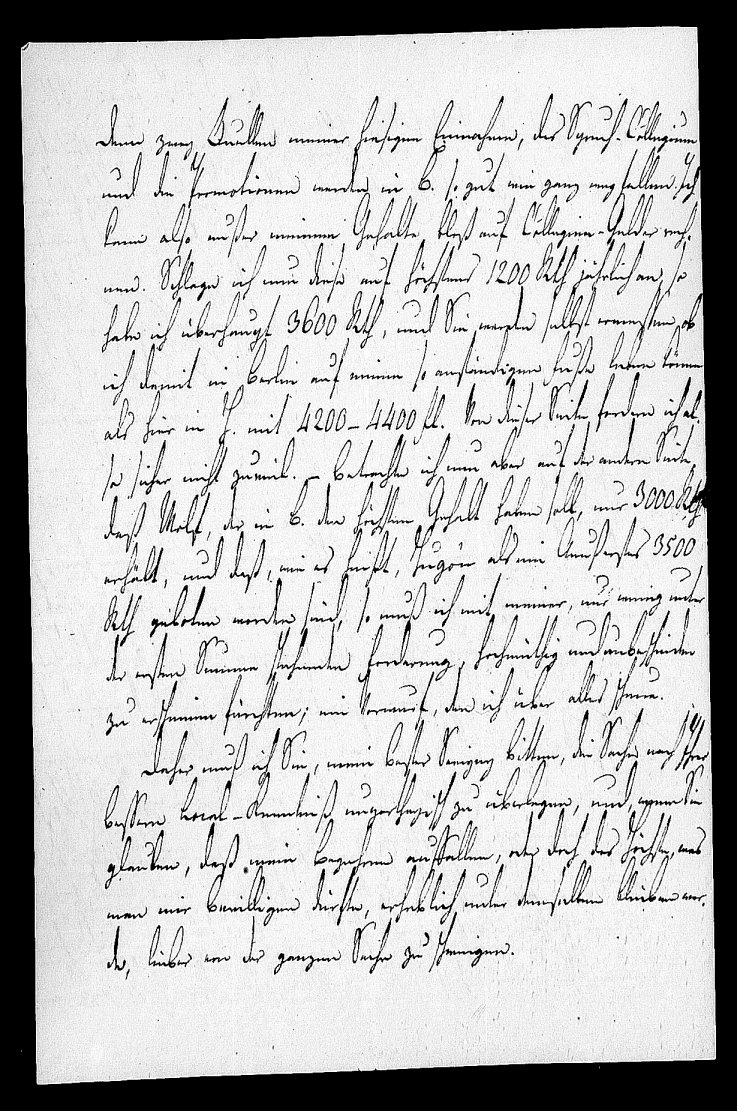 Denn zwey Quellen meiner hiesigen Einnahme, das Spruch-Collegium
und die Promotionen werden in B. so gut wie ganz wegfallen. Ich
kann also außer meinem Gehalte bloß auf Collegien-Gelder rech-
nen. Schlage ich nun diese auf höchstens 1200 Rth jährlich an, so
habe ich überhaupt 3600 Rth, und Sie werden selbst ermessen, ob
ich damit in Berlin auf einem so anständigen Fuße leben könne
als hier in H. mit 4200–4400 fl. Von dieser Seite fordere ich al-
so sicher nicht zuviel. – Betrachte ich nun aber auf der andern Seite,
daß Wolf, der in B. den höchsten Gehalt haben soll, nur 3000 Rth
erhält, und daß, wie es heißt, Hugo'n als ein Äußerstes 3500
Rth geboten worden sind, so muß ich mit meiner, nur wenig unter
der ersten Summe stehenden Forderung, hochmüthig und unbescheiden
zu erscheinen fürchten; ein Vorwurf, den ich über alles scheue.
Daher muß ich Sie, mein bester Savigny bitten, die Sache nach Ihrer
bessern Local-Kenntniß unpartheyisch zu überlegen, und, wenn Sie
glauben, daß mein Begehren auffallen, oder doch das Höchste, was
man mir bewilligen dürfte, erheblich unter demselben bleiben wer-
de, lieber von der ganzen Sache zu schweigen.